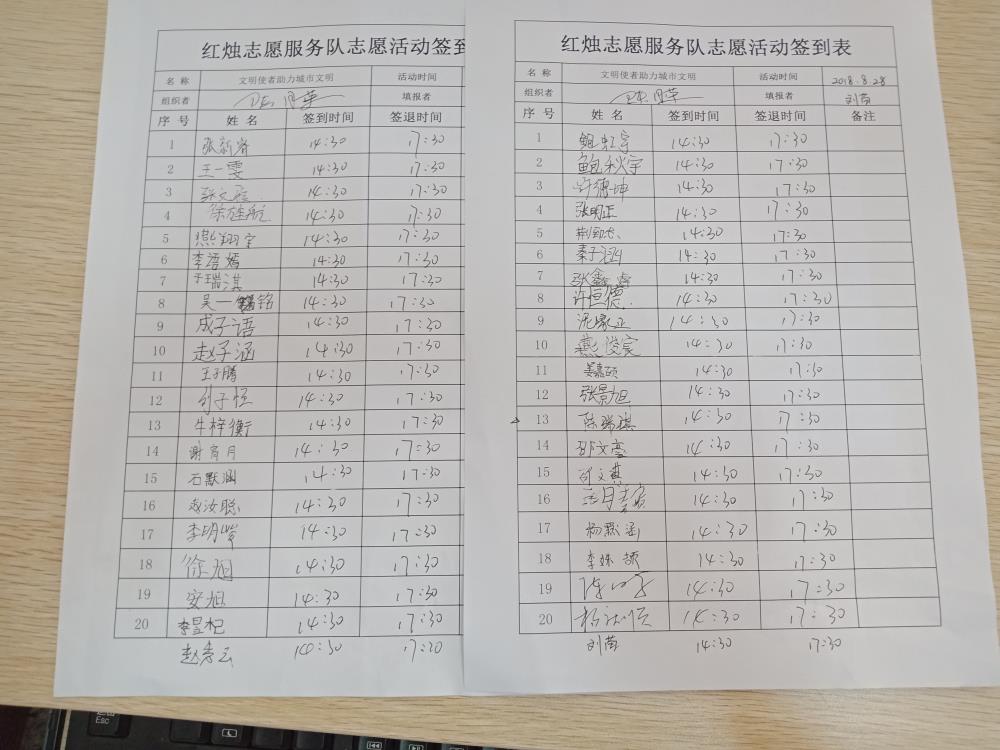 红烛志愿服务队志愿活动签到
名 称 文明使者助力城市文明 活动时间
组织者 填报者
序 号 姓 名 签到时间 签退时间
1 张新 14:30 17:30
2 王一雯 14:30 17:30
3 张文 14:30 17:30
4 徐雄航 14:30 17:30
5 燕翔宇 14:30 17:30
6 李语嫣 14:30 17:30
7 瑞淇 14:30 17:30
8 吴一铭 14:30 17:30
9 成子语 14:30 17:30
10 赵子涵 14:30 17:30
11 王子腾 14:30 17:30
12 子恒 14:30 17:30
13 牛梓衡 14:30 17:30
14 谢月 14:30 17:30
15 石默涵 14:30 17:30
16 赵汝聪 14:30 17:30
17 李明 14:30 17:30
18 徐旭 14:30 17:30
19 安旭 14:30 17:30
20 李昱杞 14:30 17:30
赵秀云 14:30 17:20
红烛志愿服务队志愿活动签到表
名 称 文明使者助力城市文明 活动时间 2018.8.28
组织者 填报者 刘茵
序 号 姓 名 签到时间 签退时间 备注
1 鲍虹宇 14:30 17:30
2 鲍秋宇 14:30 17:30
3 许德坤 14:30 17:30
4 张明正 14:30 17:30
5 荆 14:30 17:30
6 秦子涵 14:30 17:30
7 张鑫睿 14:30 17:30
8 许恒德 14:30 17:30
9 14:30 17:30
10 燕俊宾 14:30 17:30
11 姜嘉硕 14:30 17:30
12 张景旭 14:30 17:30
13 陈瑞祺 14:30 17:30
14 邵文豪 14:30 17:30
15 文 14:30 17:30
16 14:30 17:30
17 杨默涵 14:30 17:30
18 李姝颉 14:30 17:30
19 14:30 17:30
20 14:30 17:30
刘茵 14:30 17:30
Esc